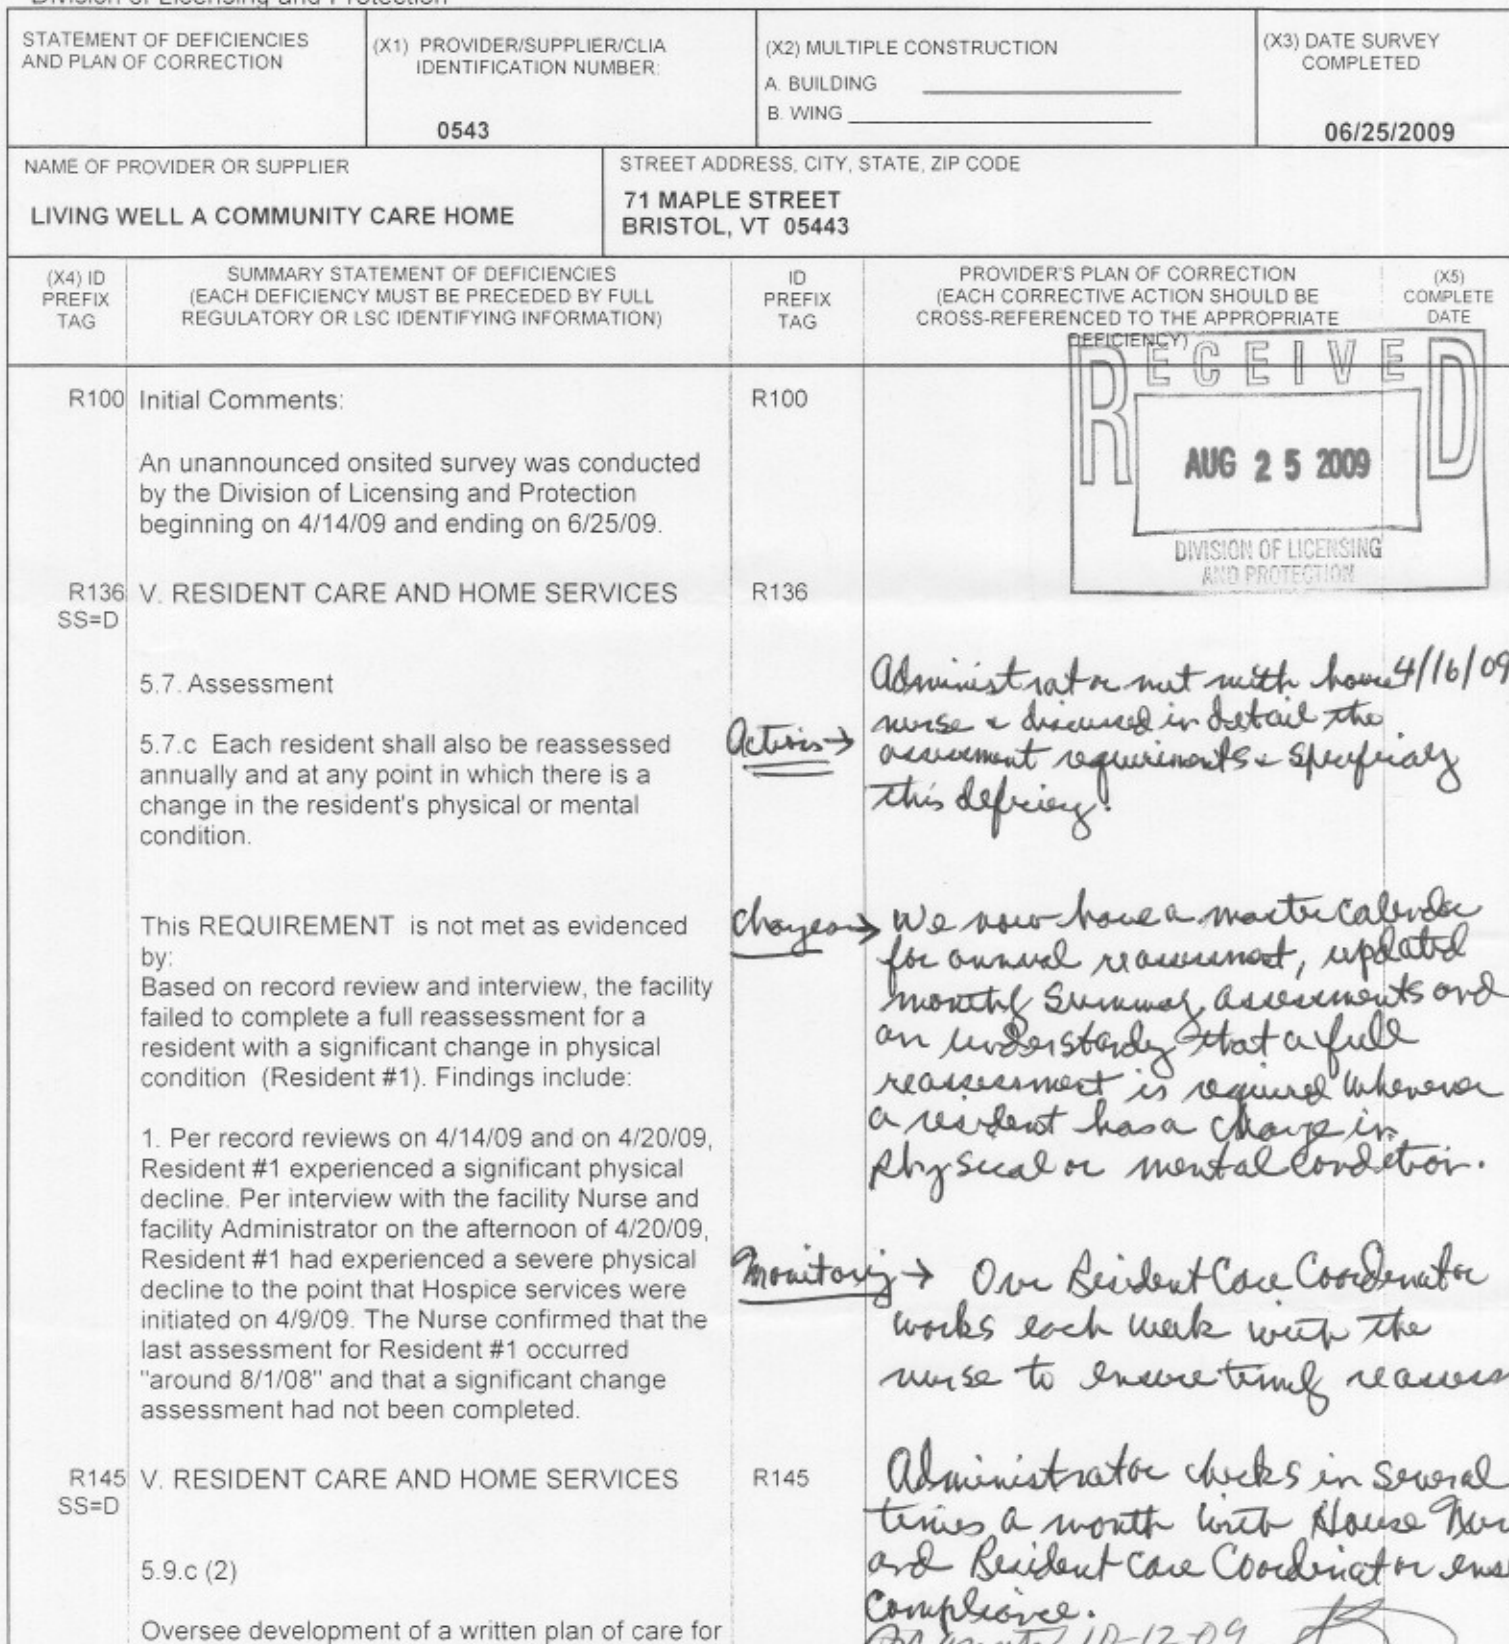 Division of Licensing and Protection
STATEMENT OF DEFICIENCIES
AND PLAN OF CORRECTION
(X1) PROVIDER/SUPPLIER/CLIA
IDENTIFICATION NUMBER:
0543
(X2) MULTIPLE CONSTRUCTION
A. BUILDING
B. WING
(X3) DATE SURVEY
COMPLETED
06/25/2009
NAME OF PROVIDER OR SUPPLIER
LIVING WELL A COMMUNITY CARE HOME
STREET ADDRESS, CITY, STATE, ZIP CODE
71 MAPLE STREET
BRISTOL, VT 05443
(X4) ID
PREFIX
TAG
SUMMARY STATEMENT OF DEFICIENCIES
(EACH DEFICIENCY MUST BE PRECEDED BY FULL
REGULATORY OR LSC IDENTIFYING INFORMATION)
ID
PREFIX
TAG
PROVIDER'S PLAN OF CORRECTION
(EACH CORRECTIVE ACTION SHOULD BE
CROSS-REFERENCED TO THE APPROPRIATE
DEFICIENCY)
(X5)
COMPLETE
DATE
RECEIVED
AUG 25 2009
DIVISION OF LICENSING
AND PROTECTION
R100 Initial Comments:
R100
An unannounced onsited survey was conducted
by the Division of Licensing and Protection
beginning on 4/14/09 and ending on 6/25/09.
R136 V. RESIDENT CARE AND HOME SERVICES
SS=D
R136
5.7. Assessment
5.7.c Each resident shall also be reassessed
annually and at any point in which there is a
change in the resident's physical or mental
condition.
This REQUIREMENT is not met as evidenced
by:
Based on record review and interview, the facility
failed to complete a full reassessment for a
resident with a significant change in physical
condition (Resident #1). Findings include:
1. Per record reviews on 4/14/09 and on 4/20/09,
Resident #1 experienced a significant physical
decline. Per interview with the facility Nurse and
facility Administrator on the afternoon of 4/20/09,
Resident #1 had experienced a severe physical
decline to the point that Hospice services were
initiated on 4/9/09. The Nurse confirmed that the
last assessment for Resident #1 occurred
"around 8/1/08" and that a significant change
assessment had not been completed.
Actions →
Administrator met with house 4/16/09
nurse & discussed in detail the
assessment requirements & specificaly
this deficiency.
Changes →
We now have a master calendar
for annual reassessment, updated
monthly summary assessments and
an understanding that a full
reassessment is required whenever
a resident has a change in
physical or mental condition.
Monitoring →
Our Resident Care Coordinator
works each week with the
nurse to ensure timely reassess
R145 V. RESIDENT CARE AND HOME SERVICES
SS=D
R145
5.9.c (2)
Oversee development of a written plan of care for
Administrator checks in several
times a month with House Nur
and Resident Care Coordinator ens
compliance.
10-12-09